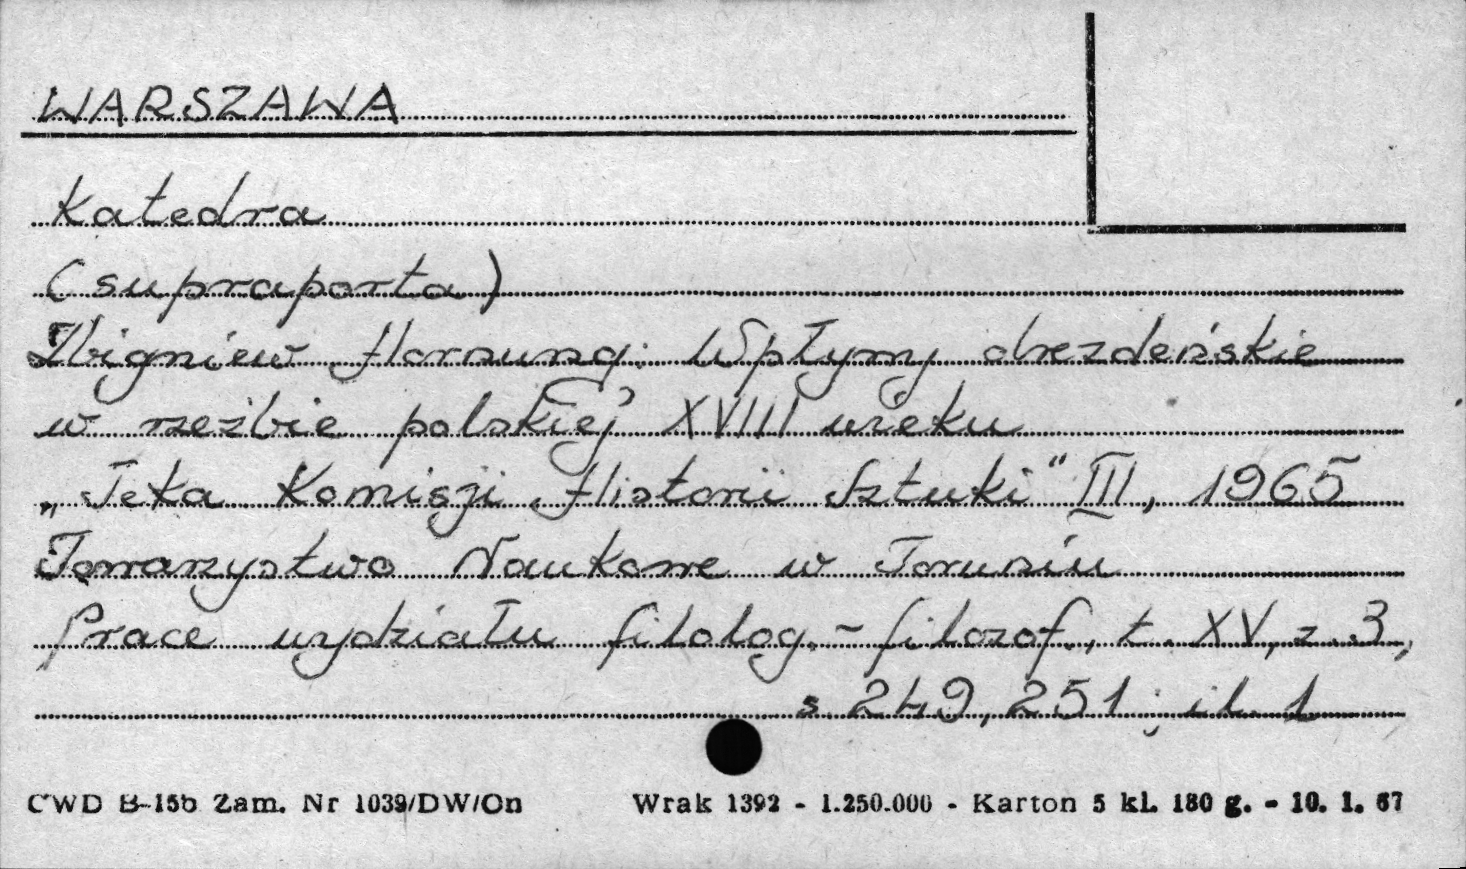 WARSZAWA
Katedra
(supraporta)
Zbigniew Hornung: Wpłymy drezdeńskie
w rzeźbie polskiej XVIII wieku
„Teka Komisji Historii Sztuki" III, 1965
Towarzystwo Naukowe w Toruniu
Prace wydziału filolog.-filozof., t. XV, z. 3,
s 249, 251; il. 1
CWD B-15b Zam. Nr 1039/DW/On Wrak 1392 - 1.250.000 - Karton 5 kl. 180 g. - 10. 1. 67